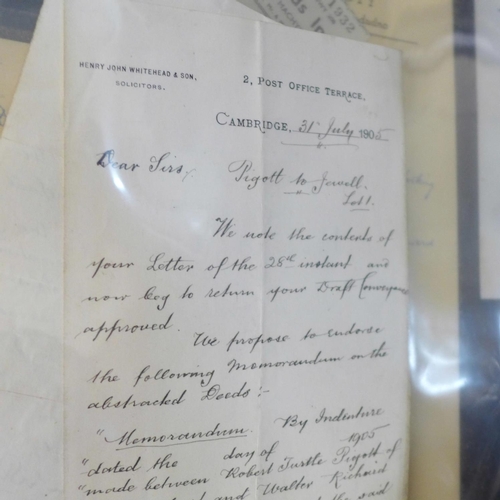 1932
HENRY JOHN WHITEHEAD & SON,
SOLICITORS.
2, POST OFFICE TERRACE,
CAMBRIDGE, 31st July 1905
Dear Sirs,
Pigott to Jewell.
Lot 1.
We note the contents of
your Letter of the 28th instant and
now beg to return your Draft Conveyance
approved.
We propose to endorse
the following Memorandum on the
abstracted Deeds :-
"Memorandum. By Indenture
"dated the day of 1905
"made between Robert Turtle Pigott of
and Walter Richard
the said